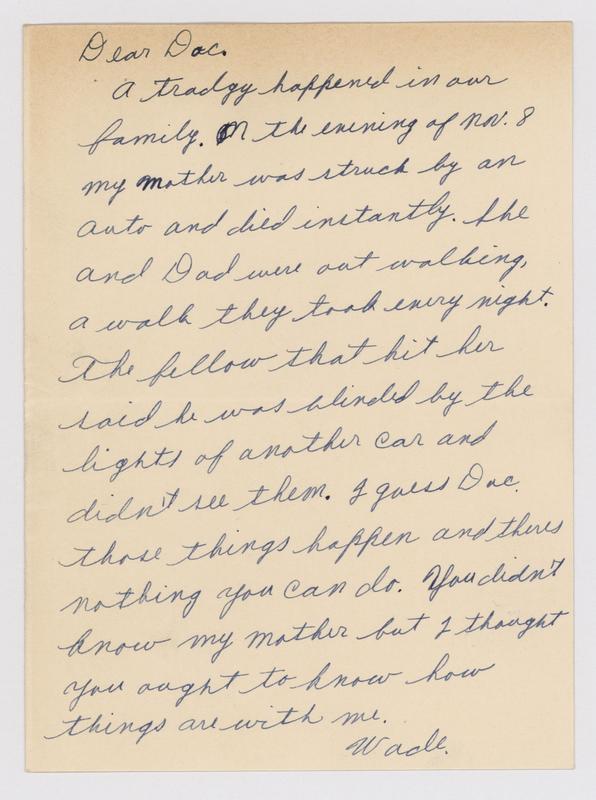 Dear Doc.
A tradgy happened in our
family. On the evening of Nov. 8
my mother was struck by an
auto and died instantly. She
and Dad were out walking,
a walk they took every night.
The fellow that hit her
said he was blinded by the
lights of another car and
didn't see them. I guess Doc.
those things happen and theres
nothing you can do. You didn't
know my mother but I thought
you ought to know how
things are with me.
Wade.